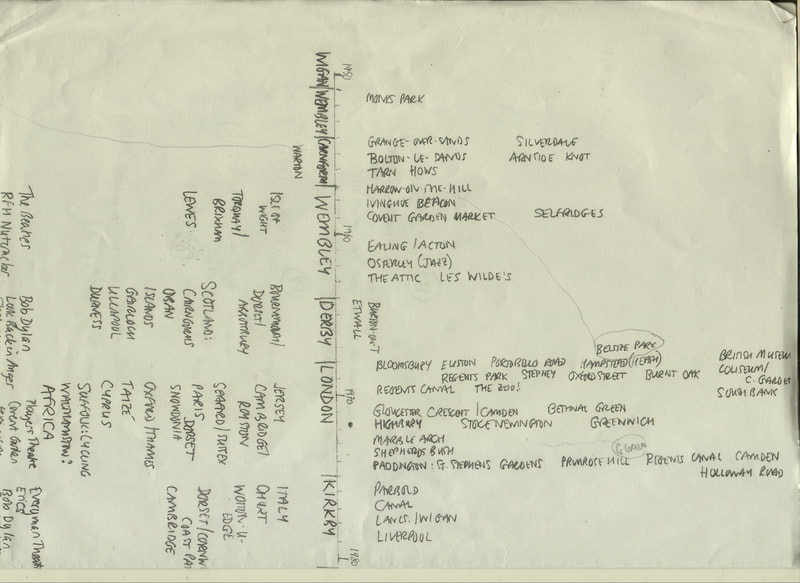 1950
1960
1970
1980
WIGAN/WEMBLEY/CARNFORTH/WEMBLEY | DERBY | LONDON | KIRKBY
MONKS PARK
GRANGE-OVER-SANDS SILVERDALE
BOLTON-LE-SANDS ARNSIDE KNOT
TARN HOWS
HARROW-ON-THE-HILL
IVINGHOE BEACON
COVENT GARDEN MARKET SELFRIDGES
EALING/ACTON
OSTERLEY (JAZZ)
THE ATTIC LES WILDE'S
BURTON-ON-T
ETWALL
BELSIZE PARK
BLOOMSBURY EUSTON PORTOBELLO ROAD HAMPSTEAD (HEATH)
REGENTS PARK STEPNEY OXFORD STREET BURNT OAK
REGENTS CANAL THE ZOO!
BRITISH MUSEUM
COLISEUM/
C. GARDEN
SOUTH BANK
GLOUCESTER CRESCENT/CAMDEN BETHNAL GREEN
HIGHBURY STOKE NEWINGTON GREENWICH
MARBLE ARCH
SHEPHERDS BUSH
PADDINGTON: ST. STEPHENS GARDENS PRIMROSE HILL REGENTS CANAL CAMDEN
HOLLOWAY ROAD
PARBOLD
CANAL
LANCS./WIGAN
LIVERPOOL
WARTON
ISLE OF
WIGHT
TORQUAY/
BRIXHAM
LEWES
BOURNEMOUTH/
DORSET/
SCOTLAND:
CAIRNGORMS
OBAN
ISLANDS
GAIRLOCH
ULLAPOOL
DURNESS
JERSEY
CAMBRIDGE/
ROYSTON
PARIS DORSET
SNOWDONIA
OXFORD/THAMES
TAIZÉ
CYPRUS
SUFFOLK: CYCLING
WALTHAMSTOW?
AFRICA
ITALY
CHURT
WOTTON-U-
EDGE
DORSET/CORNW
COAST PA
CAMBRIDGE
The Beatles
RFH Nutcracker
Bob Dylan
Look Back in Anger
Players Theatre
Covent Garden
Everyman Theat
Erics
Bob Dylan